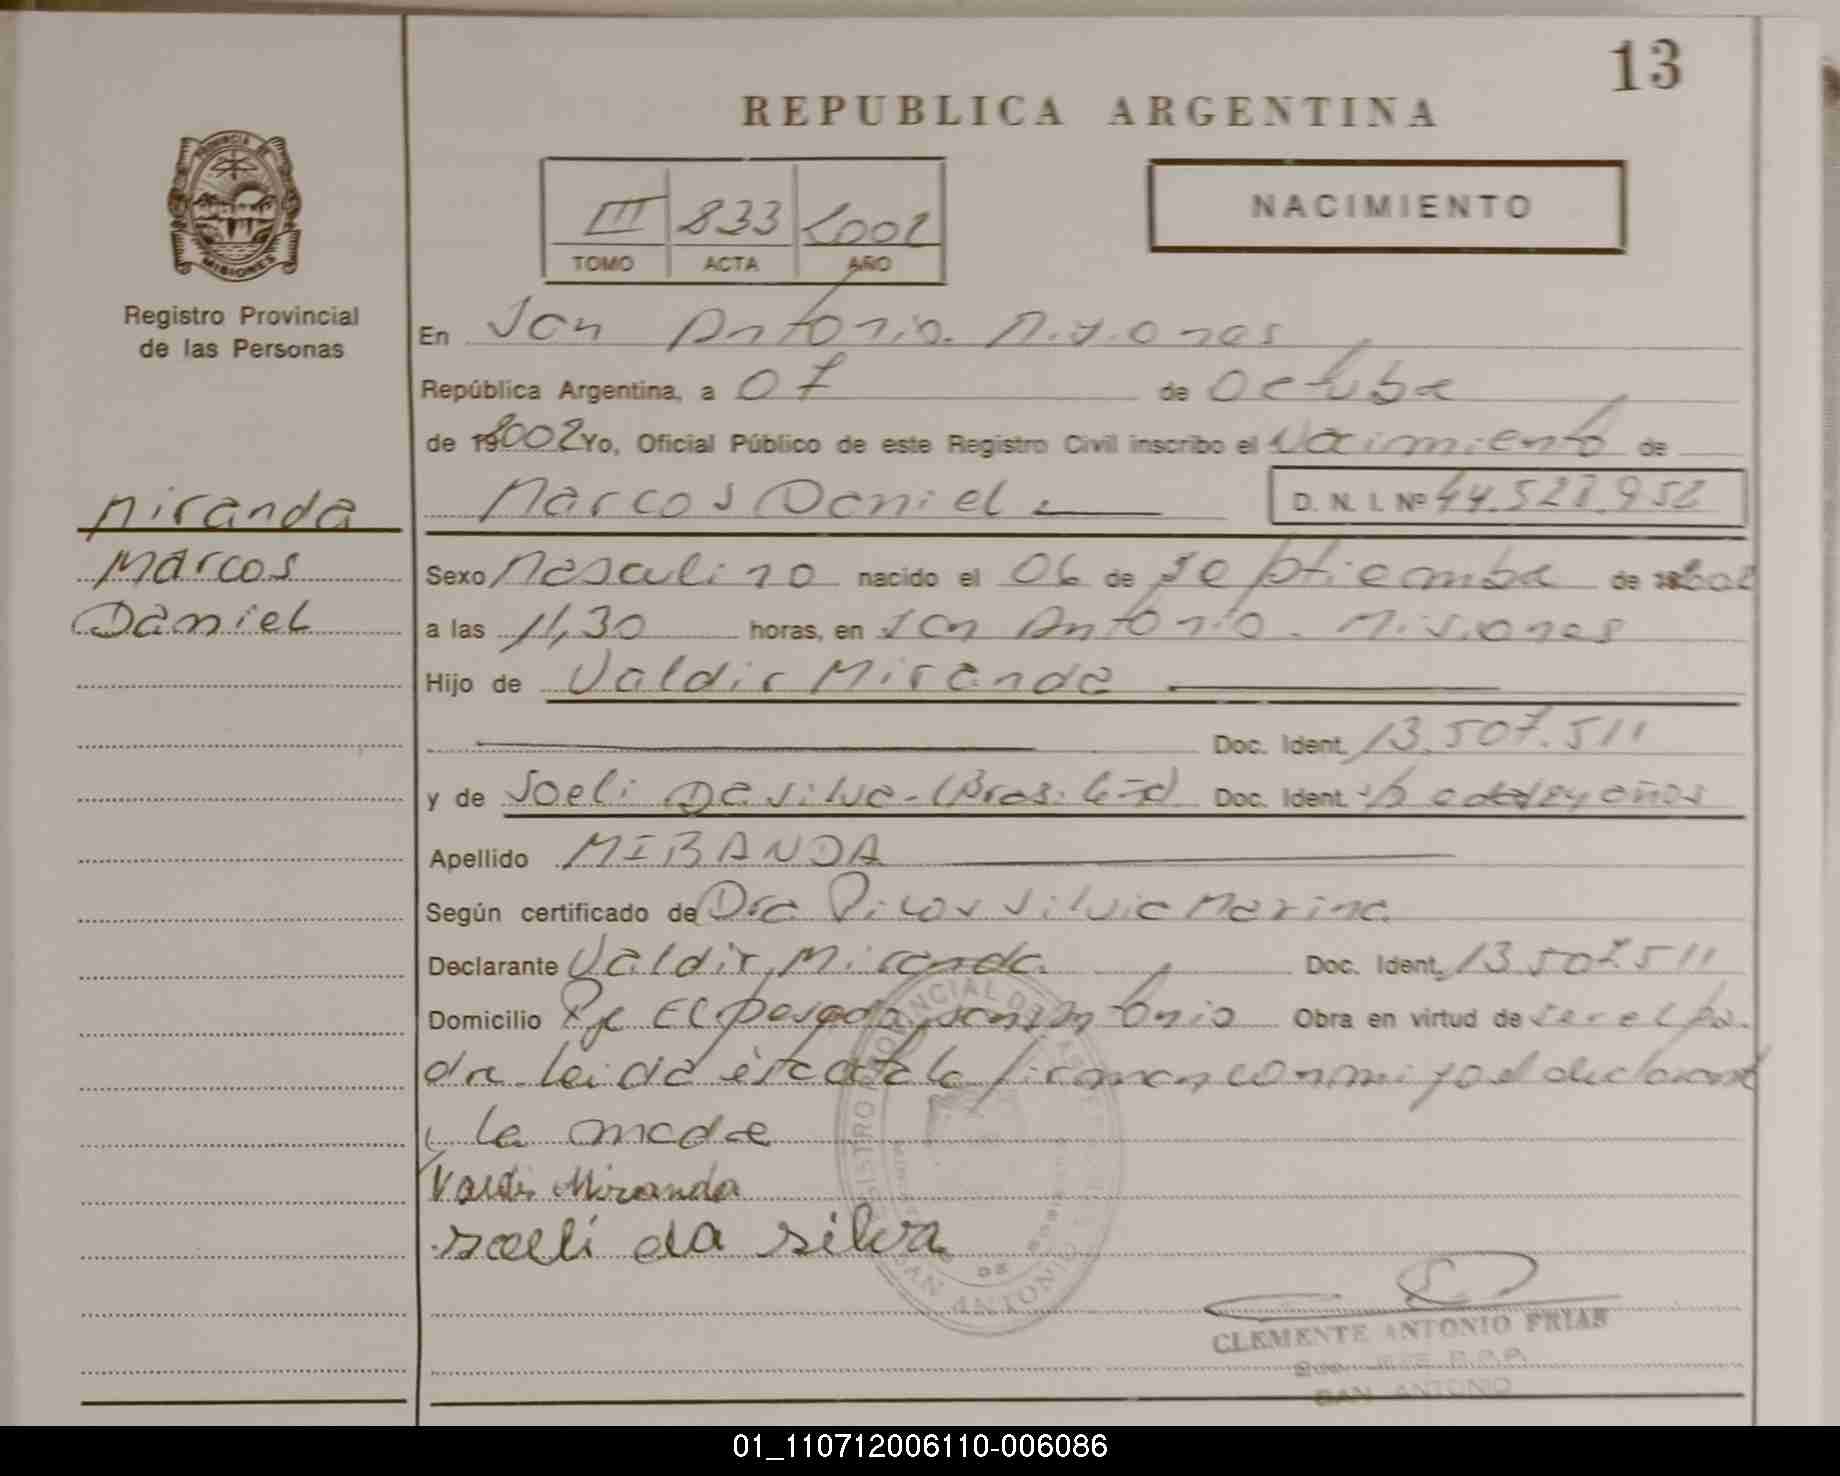 13
REPUBLICA ARGENTINA
NACIMIENTO
III 833 2002
TOMO ACTA AÑO
PROVINCIA DE MISIONES
Registro Provincial
de las Personas
En San Antonio. Misiones
República Argentina, a 07 de Octubre
de 19 2002 Yo, Oficial Público de este Registro Civil inscribo el Nacimiento de
Marcos Daniel D. N. I. Nº 44.527.952
Miranda
Marcos
Daniel
Sexo Masculino nacido el 06 de Septiembre de 2002
a las 11,30 horas, en San Antonio. Misiones
Hijo de Valdir Miranda
Doc. Ident. 13.507.511
y de Soeli Da Silva - (Brasileña) Doc. Ident. años
Apellido MIRANDA
Según certificado de Dra. Silvia Marina
Declarante Valdir Miranda Doc. Ident. 13.507.511
Domicilio San Antonio Obra en virtud de ser el pa-
dre. leida esta acta la firman conmigo el declarante
y la madre
Valdir Miranda
soeli da silva
REGISTRO PROVINCIAL DE LAS
DE
SAN ANTONIO
CLEMENTE ANTONIO FRIAS
SAN ANTONIO
01_110712006110-006086